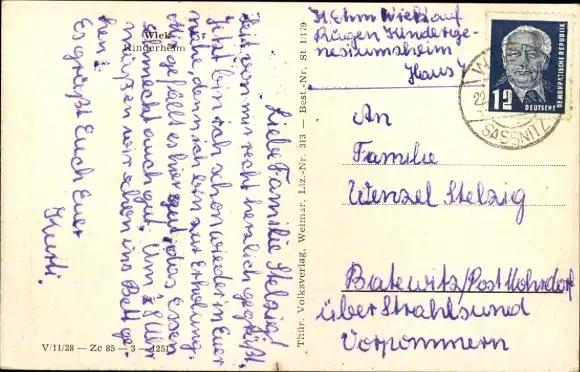 Wiek
Kinderheim
Liebe Familie Stelzig!
Seid von mir recht herzlich gegrüßt.
Jetzt bin ich schon wieder in Eurer
nähe, denn ich bin zur Erholung.
gefällt es hier gut, das Essen
schmeckt auch gut. Um ½8 Uhr
müßen wir schon ins Bett ge-
hen!
Es grüßt Euch Euer
Kurti.
V/11/28 — Ze 85 — 3 — 1251
Thür. Volksverlag, Weimar, Liz.-Nr. 313 — Best.-Nr. St 1/179
Wiek auf
Rügen Kinderge-
nesiumsheim
Haus
12
DEUTSCHE
DEMOKRATISCHE REPUBLIK
SASSNITZ
An
Familie
Wenzel Stelzig
Batewitz/Post Mohrdorf
über Strahlsund
Vorpommern